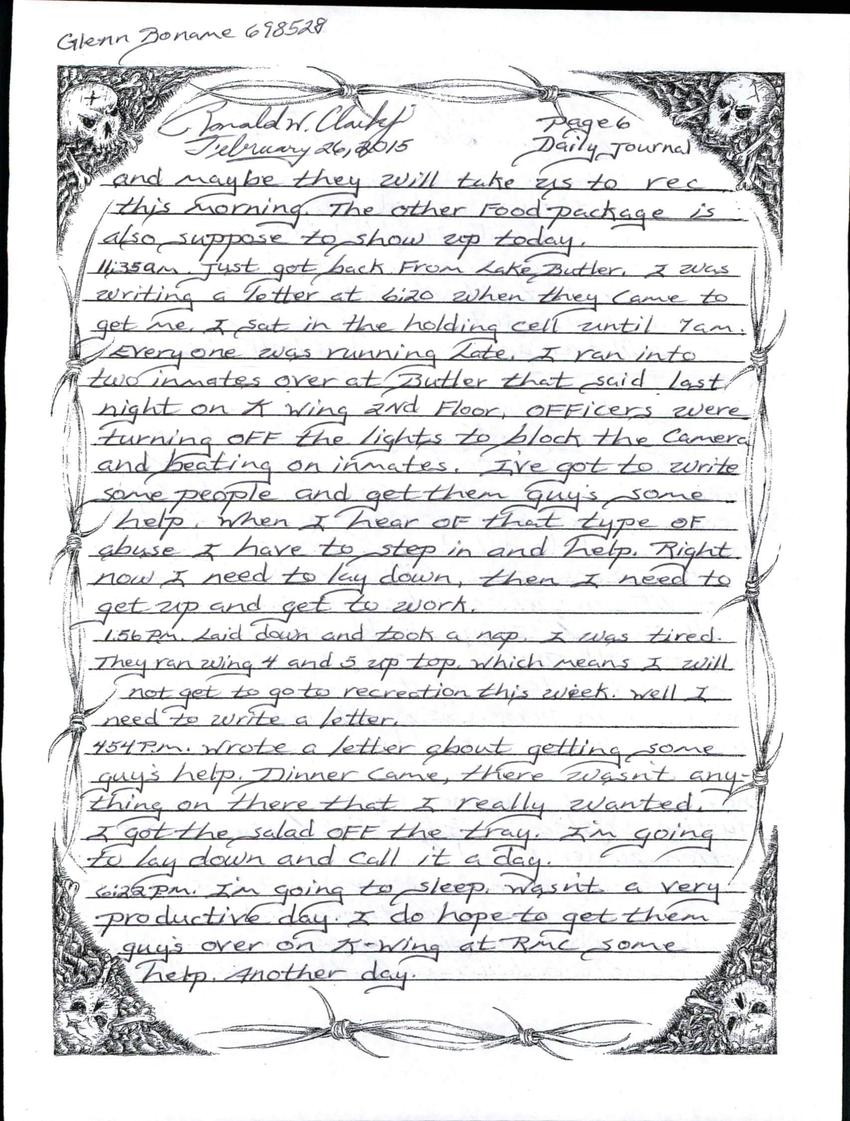 Glenn Boname 698528
Ronald W. Clark Jr
Page 6
February 26, 2015
Daily Journal
and maybe they will take us to rec
this morning. The other Food package is
also suppose to show up today.
11:35am. Just got back From Lake Butler. I was
writing a letter at 6:20 when they came to
get me. I sat in the holding cell until 7am.
Everyone was running late. I ran into
two inmates over at Butler that said last
night on K Wing 2nd Floor, OFFicers were
turning OFF the lights to block the Camera
and beating on inmates. I've got to write
some people and get them guy's some
help. When I hear OF that type OF
abuse I have to step in and help. Right
now I need to lay down, then I need to
get up and get to work.
1:56 P.m. Laid down and took a nap. I was tired.
They ran wing 4 and 5 up top. which means I will
not get to go to recreation this week. Well I
need to write a letter.
4:54 P.m. Wrote a letter about getting some
guy's help. Dinner came, there wasn't any-
thing on there that I really wanted.
I got the salad OFF the tray. I'm going
to lay down and call it a day.
6:22 P.m. I'm going to sleep. Wasn't a very
productive day. I do hope to get them
guy's over on K-Wing at RMC some
help. Another day.